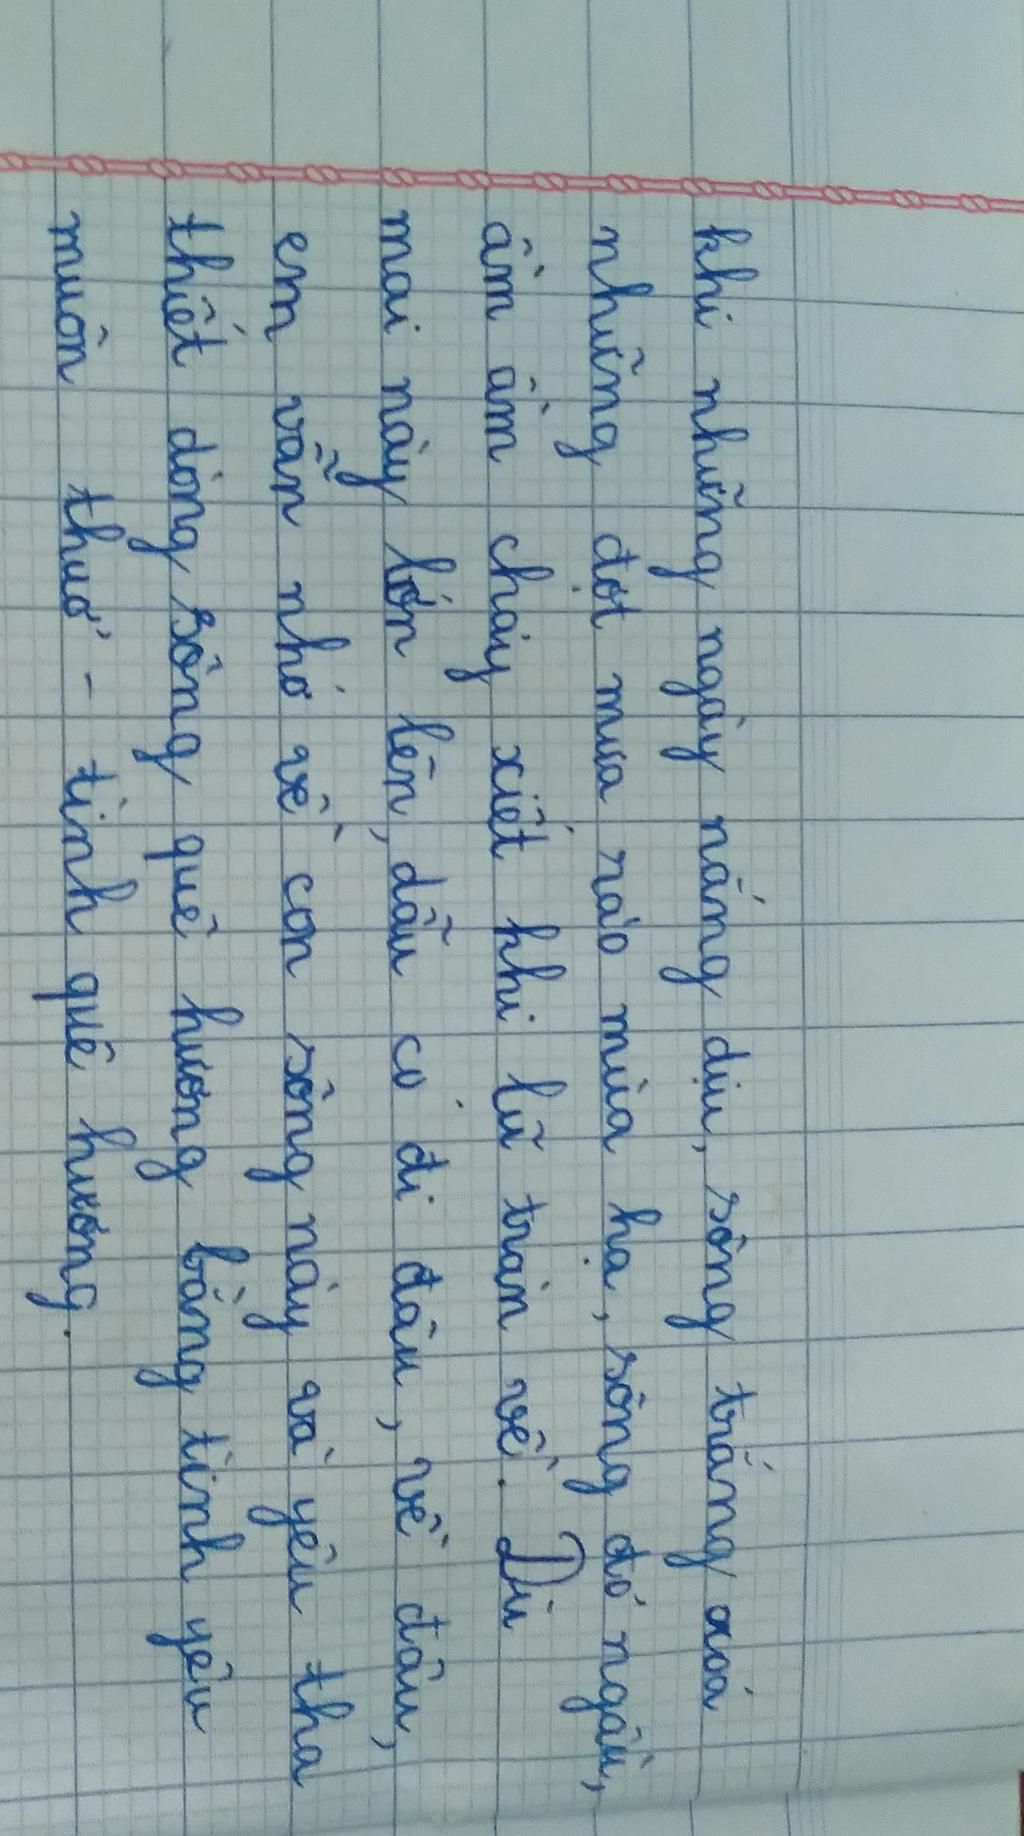 khi những ngày nắng dịu, sông trắng xoá
những đợt mưa rào mùa hạ, sông đỏ ngầu,
ầm ầm chảy xiết khi lũ tràn về. Dù
mai này lớn lên, dẫu có đi đâu, về đâu,
em vẫn nhớ về con sông này và yêu tha
thiết dòng sông quê hương bằng tình yêu
muôn thuở - tình quê hương.